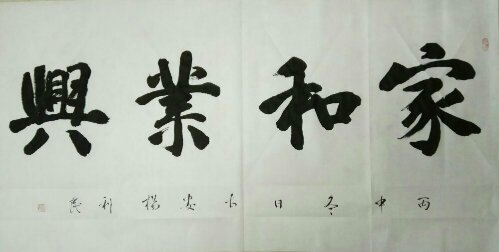 家和業興
丙申冬日
楊利民